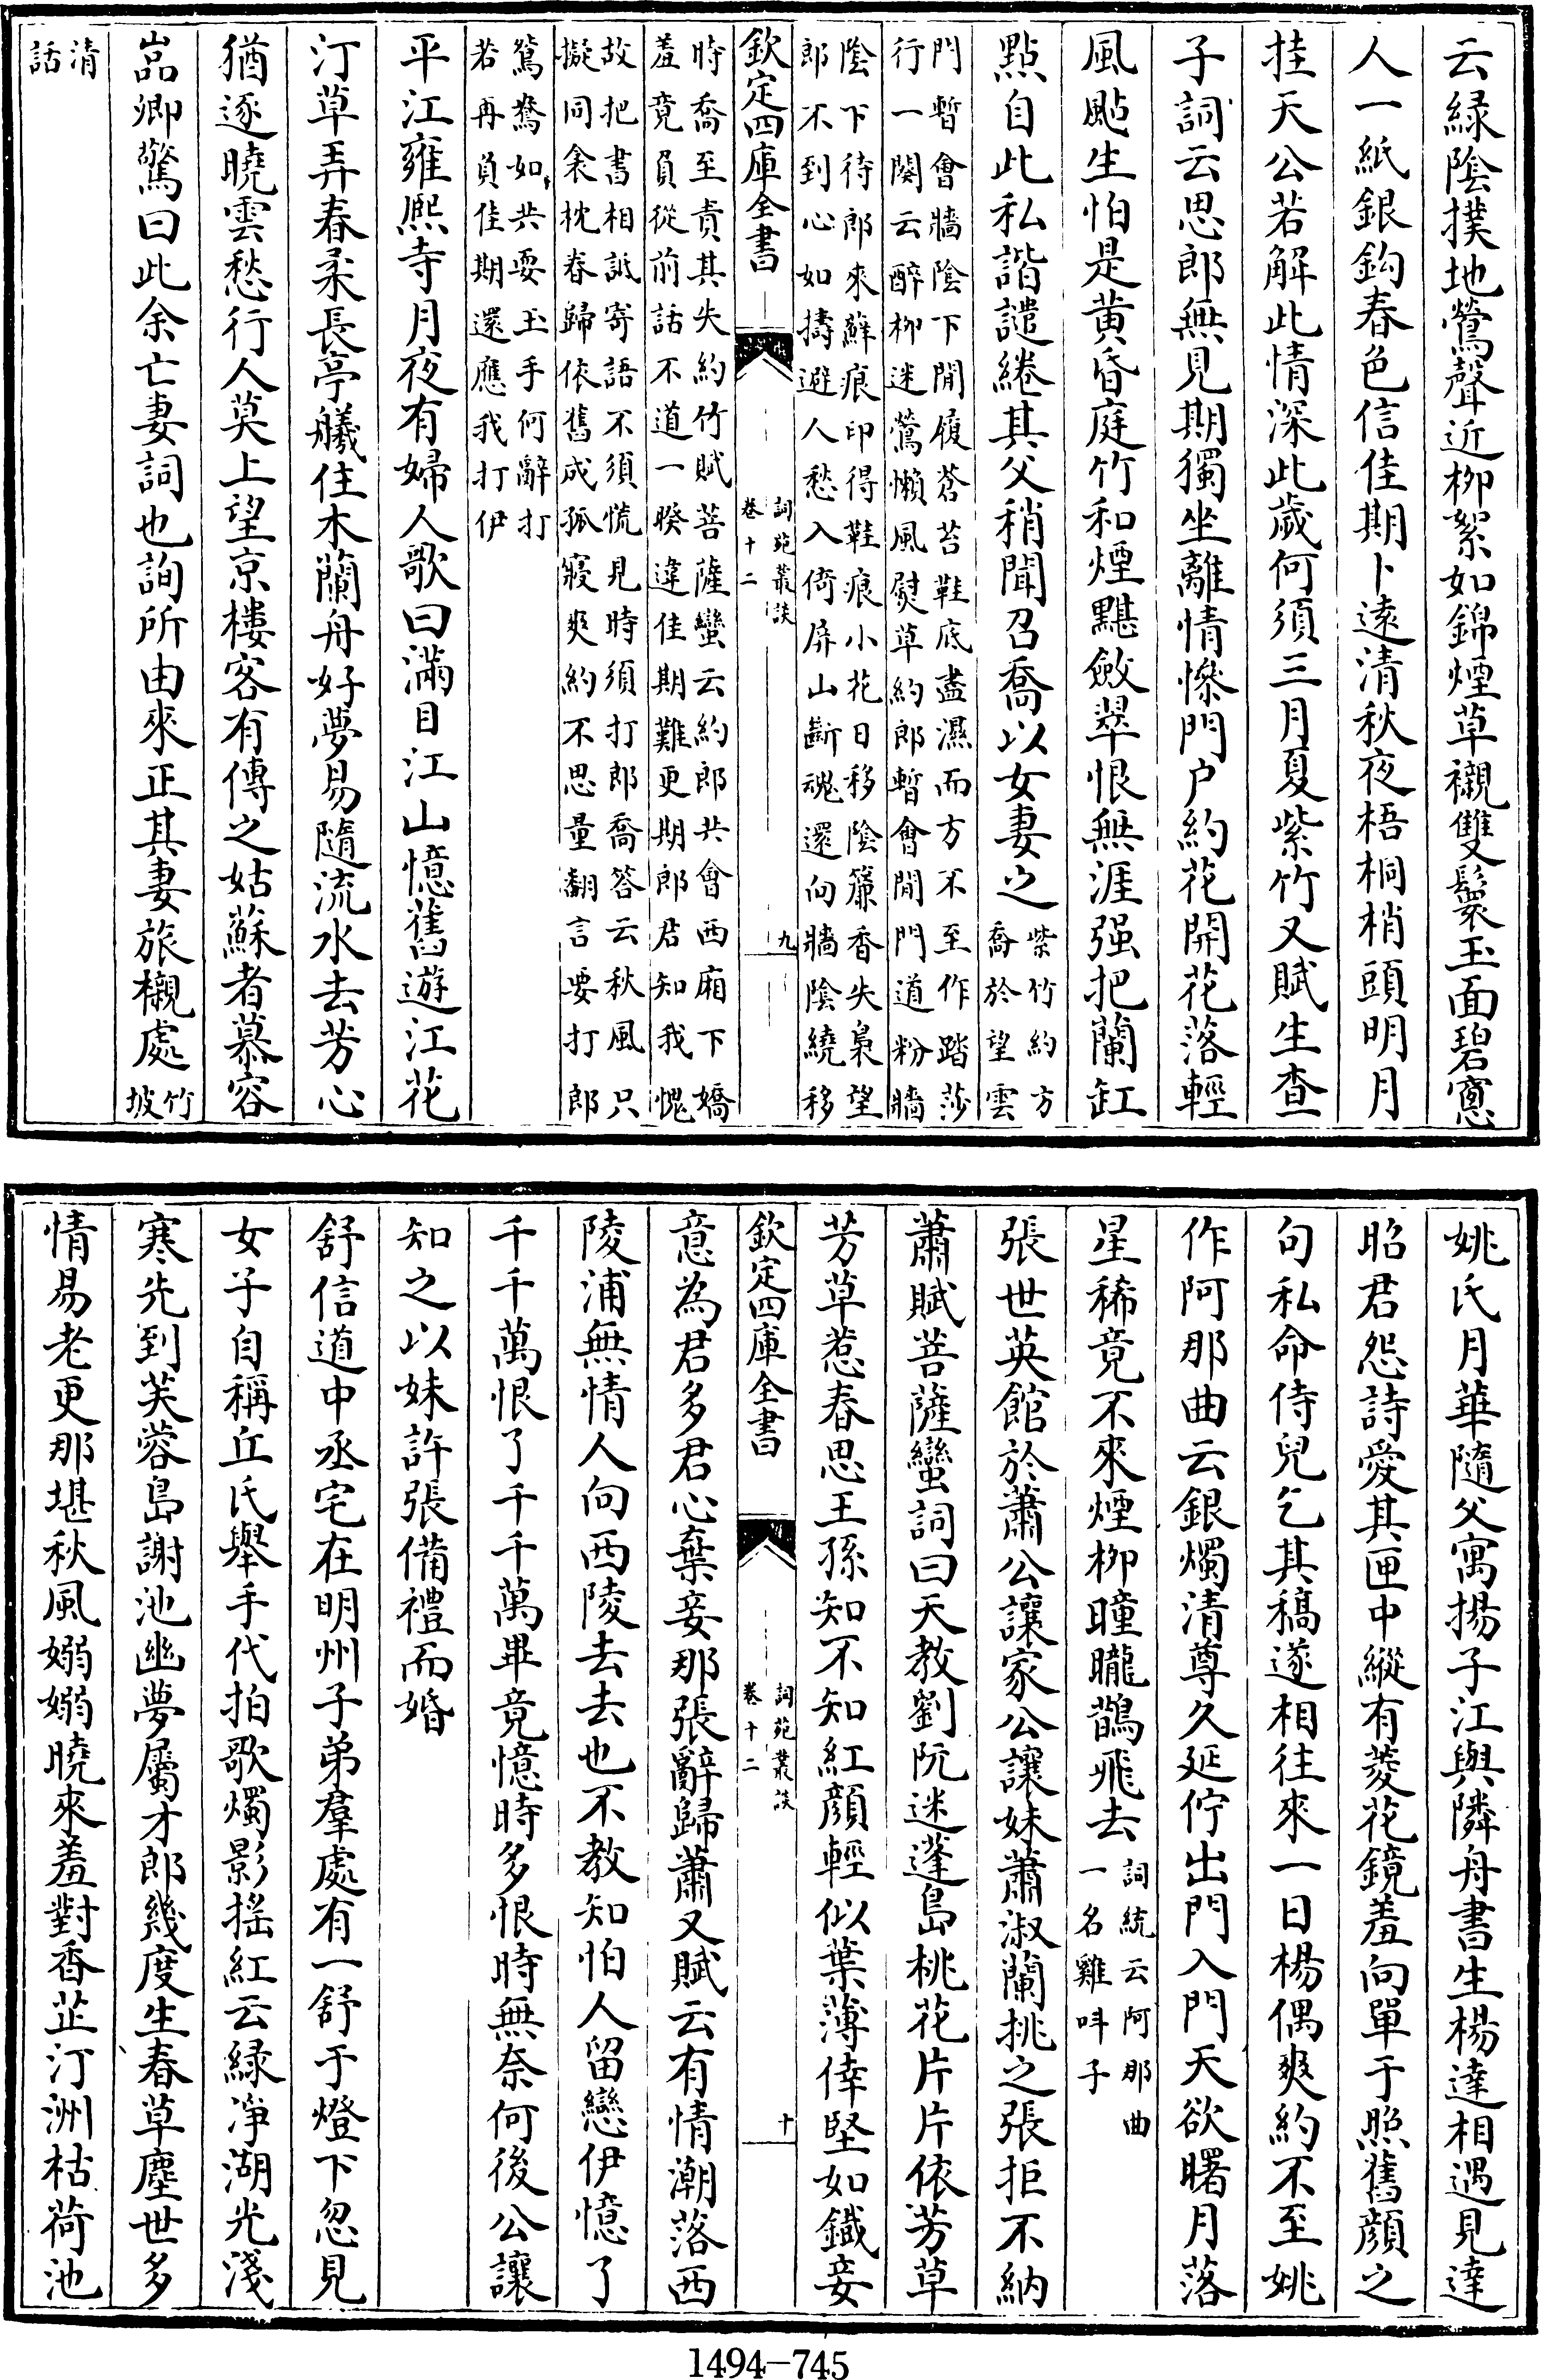 云緑陰撲地鶯聲近柳絮如錦煙草襯雙鬟玉面碧窻
人一紙銀鈎春色信佳期卜逺清秋夜梧桐梢頭明月
挂天公若解此情深此歲何須三月夏紫竹又賦生查
子詞云思郎無見期獨坐離情慘門户約花開花落輕
風颭生怕是黄昏庭竹和煙黮斂翠恨無涯强把蘭缸
點自此私諧譴綣其父稍聞召喬以女妻之
紫竹約方
喬於望雲
門暫會牆陰下閒履蒼苔鞋底盡濕而方不至作踏莎
行一闋云醉柳迷鶯懶風熨草約郎暫會閒門道粉牆
陰下待郎來蘚痕印得鞋痕小花日移陰簾香失裊望
郎不到心如擣避人愁入倚屏山斷魂還向牆陰繞移
欽定四庫全書
詞苑叢談
卷十二
九
時喬至責其失約竹賦菩薩蠻云約郎共會西廂下嬌
羞竟負從前話不道一暌違佳期難更期郎君知我愧
故把書相詆寄語不須慌見時須打郎喬答云秋風只
擬同衾枕春歸依舊成孤寢爽約不思量翻言要打郎
鴛鴦如共耍玉手何辭打
若再負佳期還應我打伊
平江雍熈寺月夜有婦人歌曰滿目江山憶舊遊江花
汀草弄春柔長亭艤住木蘭舟好夢易隨流水去芳心
猶逐曉雲愁行人莫上望京樓客有傳之姑蘇者慕容
嵓卿驚曰此余亡妻詞也詢所由來正其妻旅櫬處
竹
坡
清
話
姚氏月華隨父寓揚子江與隣舟書生楊達相遇見達
昭君怨詩愛其匣中縱有菱花鏡羞向單于照舊顔之
句私命侍兒乞其稿遂相往來一日楊偶爽約不至姚
作阿那曲云銀燭清尊久延佇出門入門天欲曙月落
星稀竟不來煙柳曈曨鵲飛去
詞統云阿那曲
一名雞呌子
張世英館於蕭公讓家公讓妹蕭淑蘭挑之張拒不納
蕭賦菩薩蠻詞曰天教劉阮迷蓬島桃花片片依芳草
芳草惹春思王孫知不知紅顔輕似葉薄倖堅如鐵妾
欽定四庫全書
詞苑叢談
卷十二
十
意為君多君心棄妾那張辭歸蕭又賦云有情潮落西
陵浦無情人向西陵去去也不教知怕人留戀伊憶了
千千萬恨了千千萬畢竟憶時多恨時無奈何後公讓
知之以妹許張備禮而婚
舒信道中丞宅在明州子弟羣處有一舒于燈下忽見
女子自稱丘氏舉手代拍歌燭影揺紅云緑凈湖光淺
寒先到芙蓉島謝池幽夢屬才郎幾度生春草塵世多
情易老更那堪秋風嫋嫋曉來羞對香芷汀洲枯荷池
1494-745